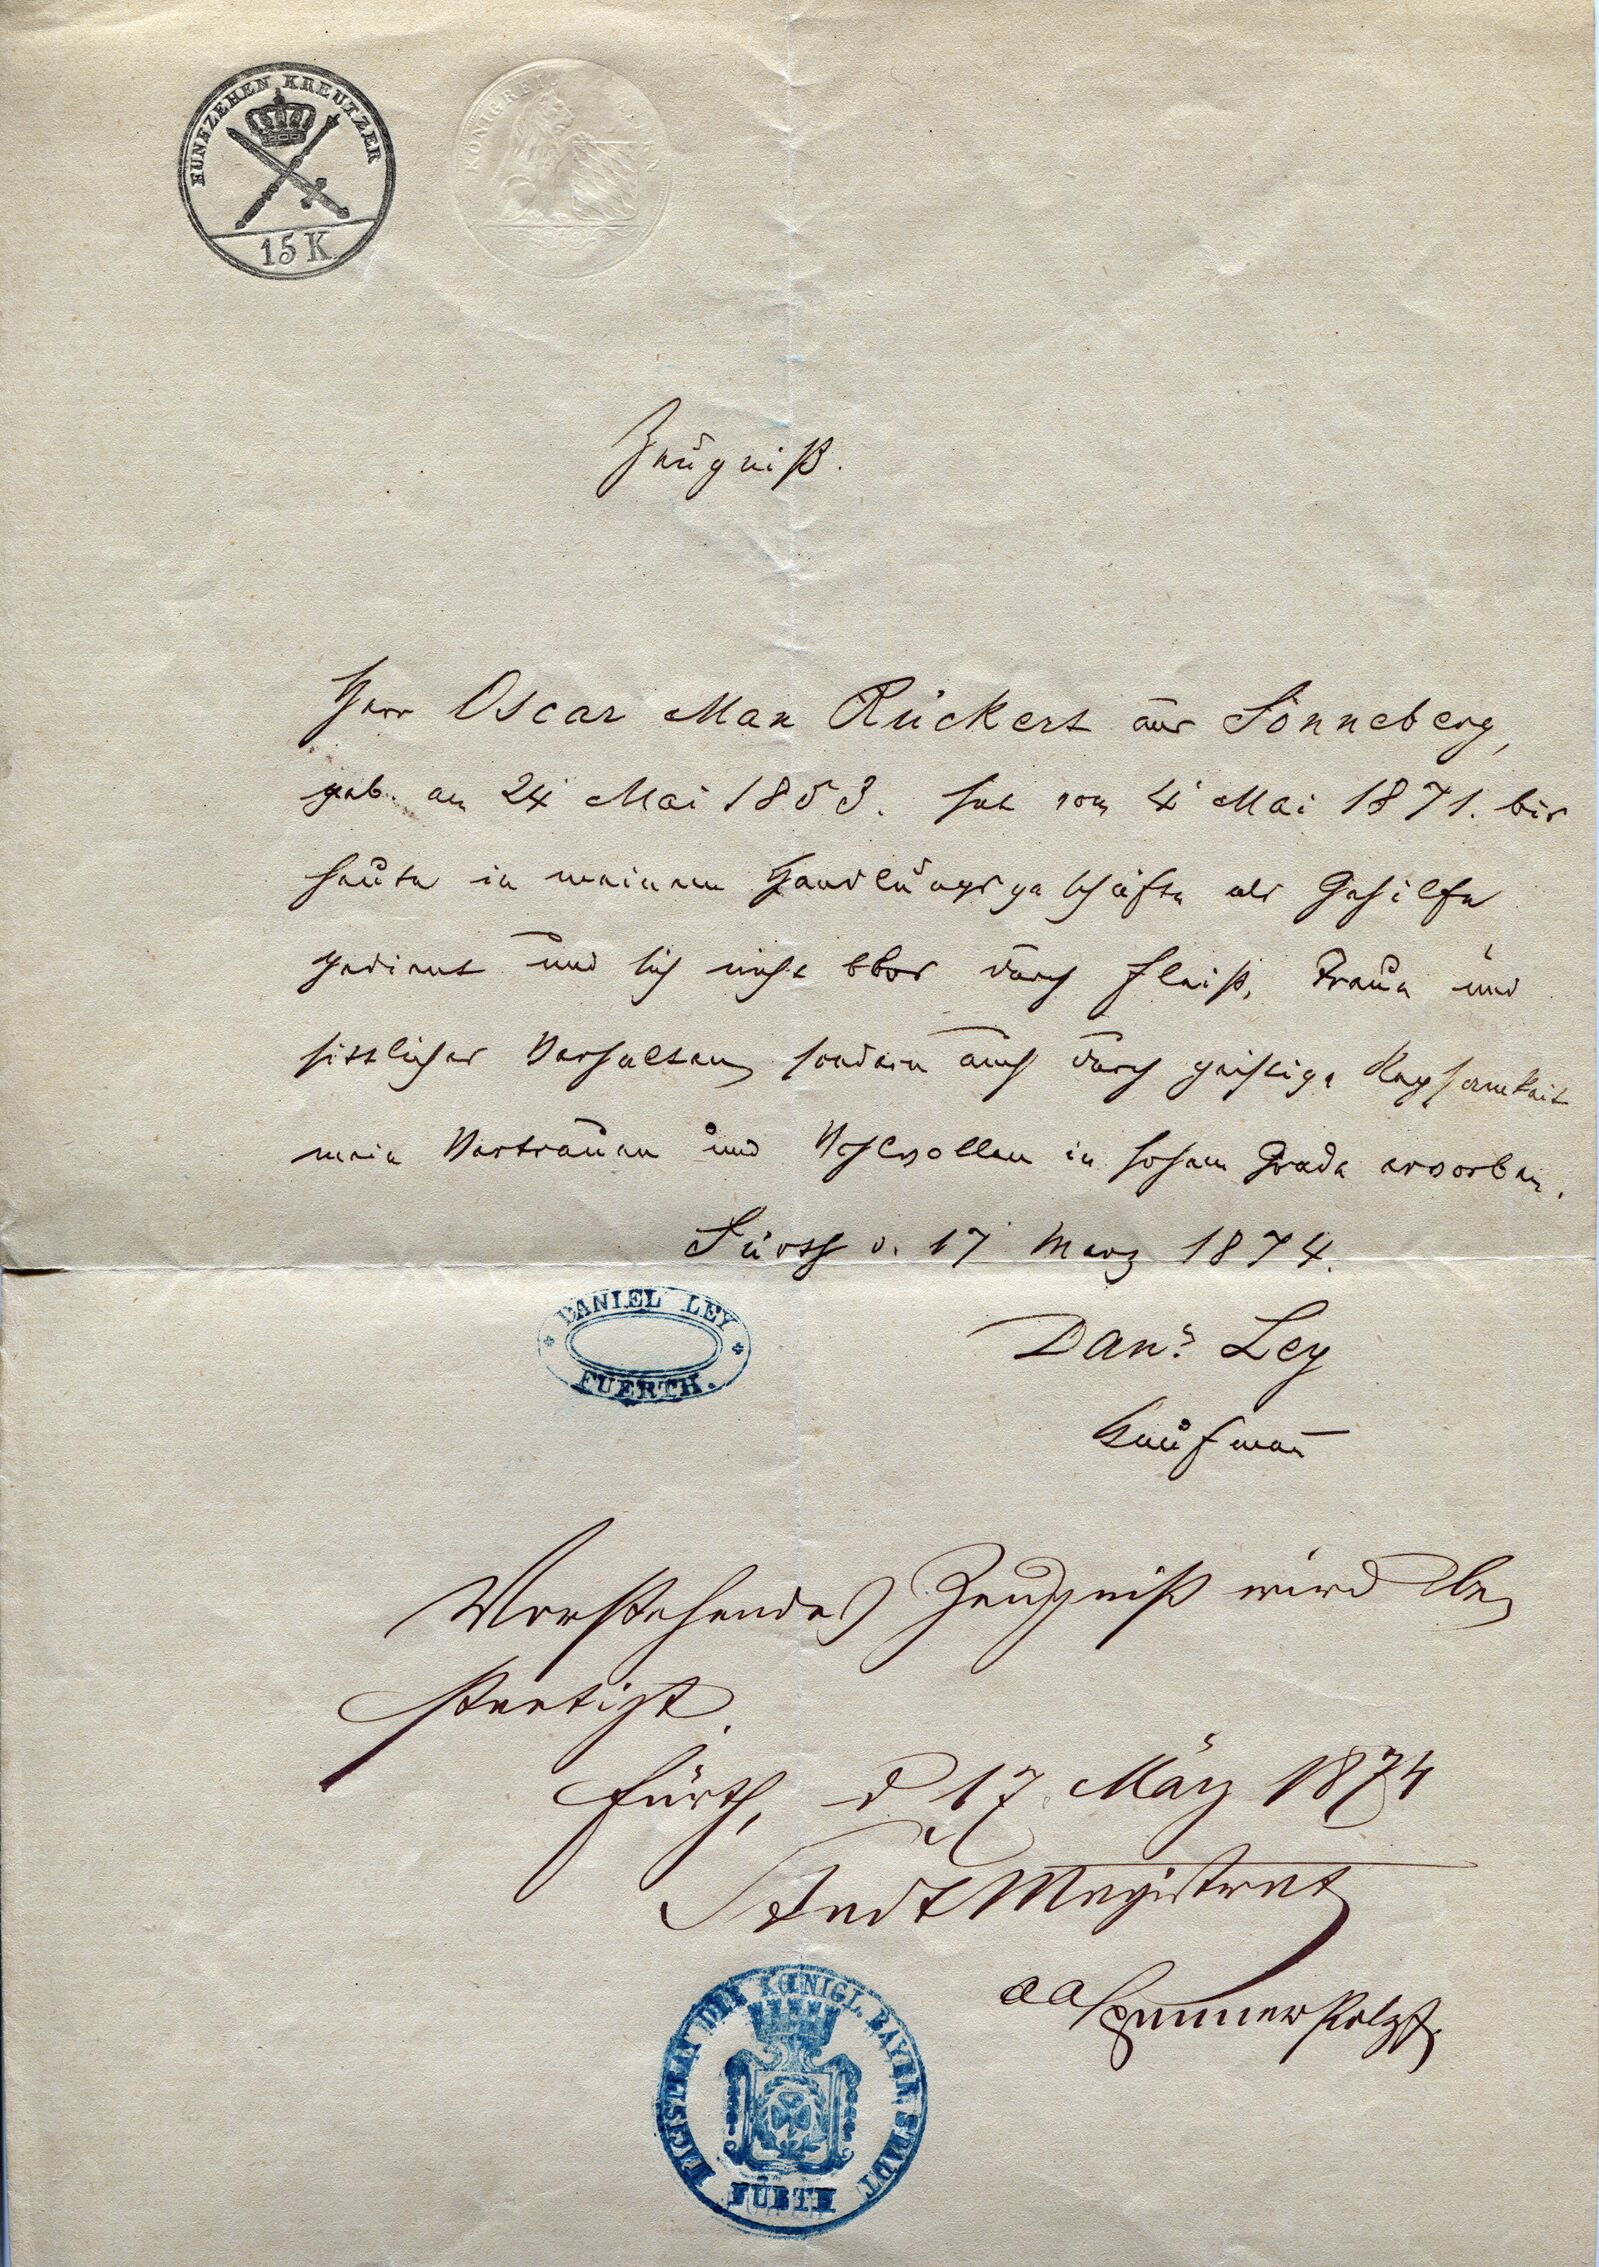 FÜNFZEHEN KREUTZER
15 K
KÖNIGREICH BAYERN
Zeügniß.
Herr Oscar Max Rückert aus Sonneberg,
geb. am 24 Mai 1853. hat vom 4 Mai 1871. bis
heute in meinem Handlungsgeschäfte als Gehilfe
gedient und sich nicht blos durch Fleiß, Treue und
sittliches Verhalten sondern auch durch geistige Regsamkeit
mein Vertrauen und Wohlwollen in hohem Grade erworben.
Fürth d. 17 März 1874.
DANIEL LEY
FUERTH.
Danl Ley
Kaufmañ
Vorstehendes Zeugniß wird be
staetigt.
Fürth, d 17. März 1874
Stadt Magistrat
MAGISTRAT DER KŒNIGL. BAYER. STADT
FÜRTH